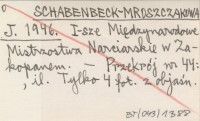 SCHABENBECK-MROSZCZAKOWA
J. 1946. I-sze Międzynarodowe
Mistrzostwa Narciarskie w Za-
kopanem. — Przekrój nr 44:
, il. Tylko 4 fot. z objaśn.